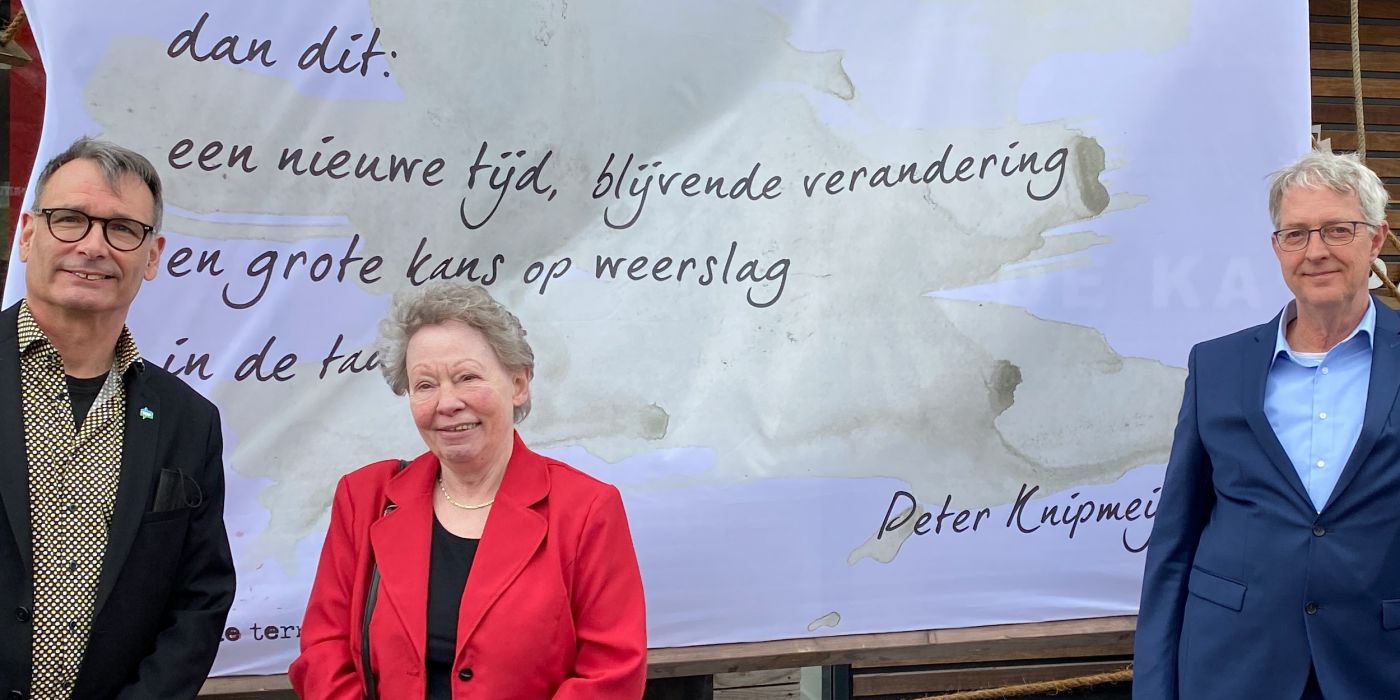 dan dit:
een nieuwe tijd, blijvende verandering
en grote kans op weerslag
in de
Peter
DE KA